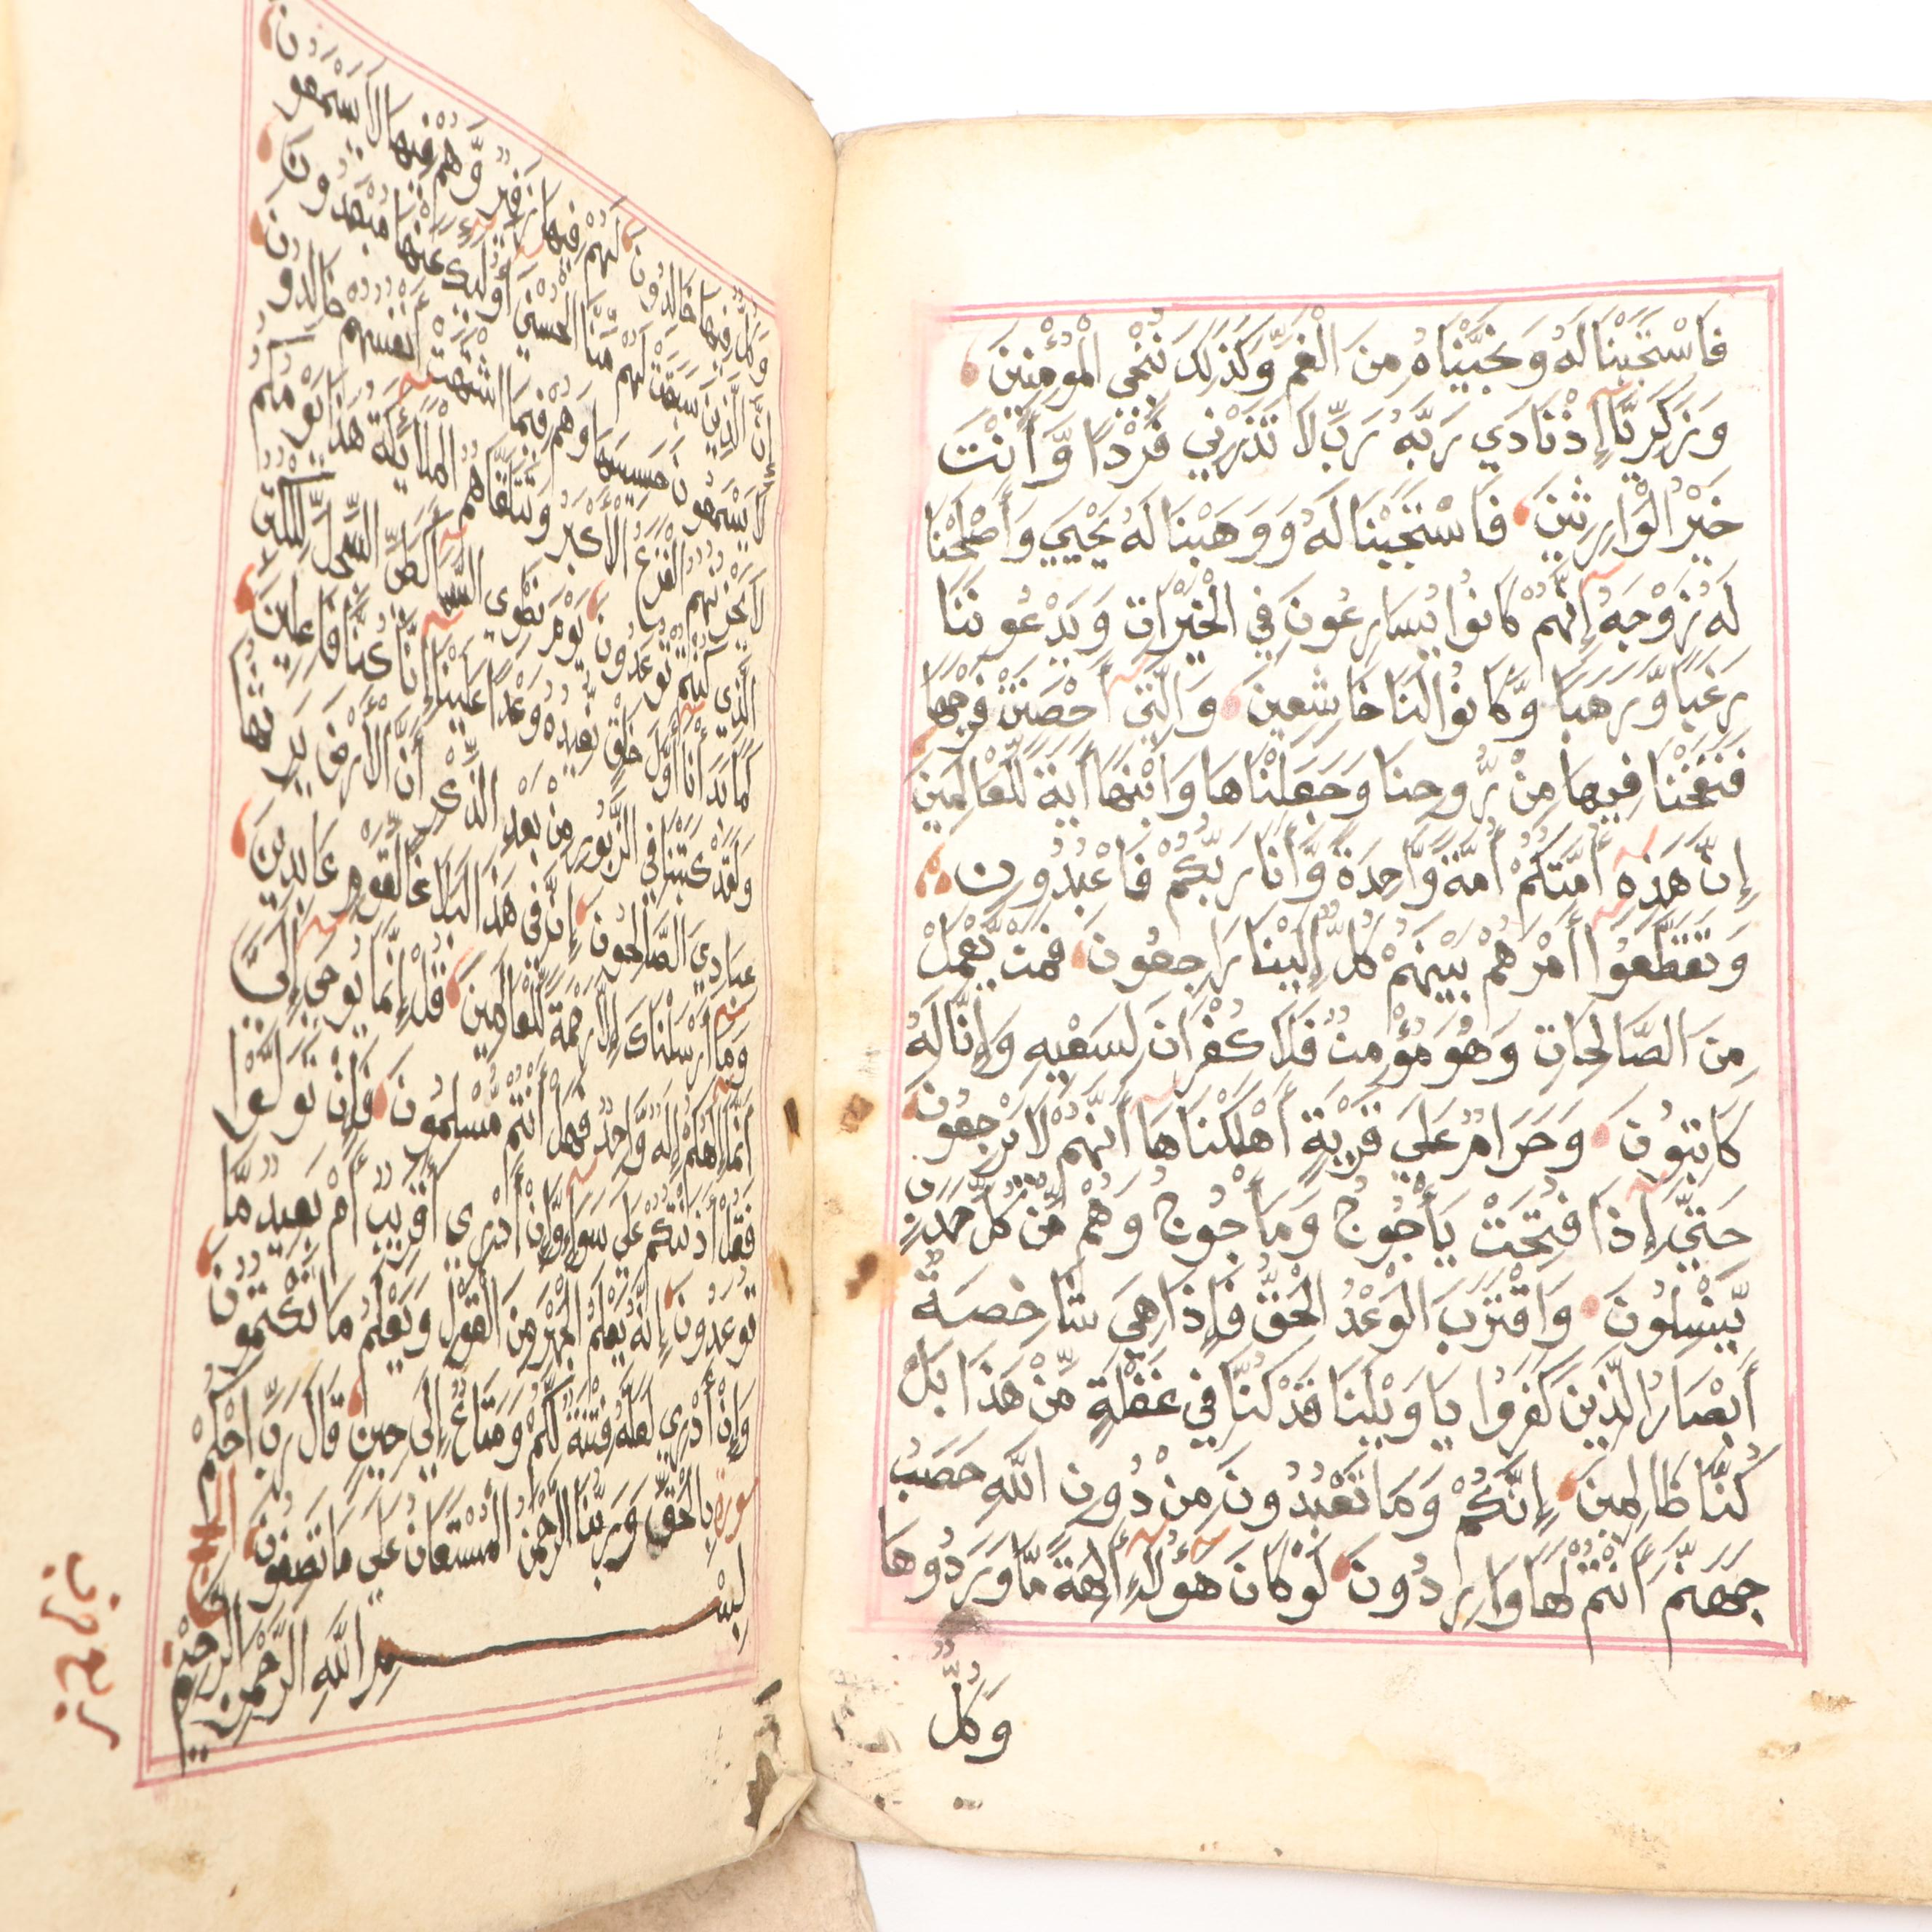 فَاسْتَجَبْنَا لَهُ وَنَجَّيْنَاهُ مِنَ الْغَمِّ وَكَذَلِكَ نُنْجِي الْمُؤْمِنِينَ
وَزَكَرِيَّا إِذْ نَادَي رَبَّهُ رَبِّ لَا تَذَرْنِي فَرْدًا وَّأَنْتَ
خَيْرُ الْوَارِثِينَ فَاسْتَجَبْنَا لَهُ وَوَهَبْنَا لَهُ يَحْيَي وَأَصْلَحْنَا
لَهُ زَوْجَهُ إِنَّهُمْ كَانُوا يُسَارِعُونَ فِي الْخَيْرَاتِ وَيَدْعُونَنَا
رَغَبًا وَّرَهَبًا وَّكَانُوا لَنَا خَاشِعِينَ وَالَّتِي أَحْصَنَتْ فَرْجَهَا
فَنَفَخْنَا فِيهَا مِنْ رُّوحِنَا وَجَعَلْنَاهَا وَابْنَهَا أَيَةً لِّلْعَالَمِينَ
إِنَّ هَذِهِ أُمَّتُكُمْ أُمَّةً وَّاحِدَةً وَّأَنَا رَبُّكُمْ فَاعْبُدُونِ
وَتَقَطَّعُوا أَمْرَهُمْ بَيْنَهُمْ كُلٌّ إِلَيْنَا رَاجِعُونَ فَمَنْ يَّعْمَلْ
مِنَ الصَّالِحَاتِ وَهُوَ مُؤْمِنٌ فَلَا كُفْرَانَ لِسَعْيِهِ وَإِنَّا لَهُ
كَاتِبُونَ وَحَرَامٌ عَلَي قَرْيَةٍ أَهْلَكْنَاهَا أَنَّهُمْ لَا يَرْجِعُونَ
حَتَّي إِذَا فُتِحَتْ يَأْجُوجُ وَمَأْجُوجُ وَهُمْ مِّنْ كُلِّ حَدَبٍ
يَّنْسِلُونَ وَاقْتَرَبَ الْوَعْدُ الْحَقُّ فَإِذَا هِيَ شَاخِصَةٌ
أَبْصَارُ الَّذِينَ كَفَرُوا يَا وَيْلَنَا قَدْ كُنَّا فِي غَفْلَةٍ مِّنْ هَذَا بَلْ
كُنَّا ظَالِمِينَ إِنَّكُمْ وَمَا تَعْبُدُونَ مِنْ دُونِ اللَّهِ حَصَبُ
جَهَنَّمَ أَنْتُمْ لَهَا وَارِدُونَ لَوْ كَانَ هَؤُلَاءِ أَلِهَةً مَّا وَرَدُوهَا
وَكُلٌّ
وَكُلٌّ فِيهَا خَالِدُونَ لَهُمْ فِيهَا زَفِيرٌ وَّهُمْ فِيهَا لَا يَسْمَعُونَ
إِنَّ الَّذِينَ سَبَقَتْ لَهُمْ مِّنَّا الْحُسْنَي أُولَئِكَ عَنْهَا مُبْعَدُونَ
لَا يَسْمَعُونَ حَسِيسَهَا وَهُمْ فِيمَا اشْتَهَتْ أَنْفُسُهُمْ خَالِدُونَ
لَا يَحْزُنُهُمُ الْفَزَعُ الْأَكْبَرُ وَتَتَلَقَّاهُمُ الْمَلَائِكَةُ هَذَا يَوْمُكُمُ
الَّذِي كُنْتُمْ تُوعَدُونَ يَوْمَ نَطْوِي السَّمَاءَ كَطَيِّ السِّجِلِّ لِلْكُتُبِ
كَمَا بَدَأْنَا أَوَّلَ خَلْقٍ نُّعِيدُهُ وَعْدًا عَلَيْنَا إِنَّا كُنَّا فَاعِلِينَ
وَلَقَدْ كَتَبْنَا فِي الزَّبُورِ مِنْ بَعْدِ الذِّكْرِ أَنَّ الْأَرْضَ يَرِثُهَا
عِبَادِيَ الصَّالِحُونَ إِنَّ فِي هَذَا لَبَلَاغًا لِّقَوْمٍ عَابِدِينَ
وَمَا أَرْسَلْنَاكَ إِلَّا رَحْمَةً لِّلْعَالَمِينَ قُلْ إِنَّمَا يُوحَي إِلَيَّ
أَنَّمَا إِلَهُكُمْ إِلَهٌ وَّاحِدٌ فَهَلْ أَنْتُمْ مُّسْلِمُونَ فَإِنْ تَوَلَّوْا
فَقُلْ أَذَنْتُكُمْ عَلَي سَوَاءٍ وَّإِنْ أَدْرِي أَقَرِيبٌ أَمْ بَعِيدٌ مَّا
تُوعَدُونَ إِنَّهُ يَعْلَمُ الْجَهْرَ مِنَ الْقَوْلِ وَيَعْلَمُ مَا تَكْتُمُونَ
وَإِنْ أَدْرِي لَعَلَّهُ فِتْنَةٌ لَّكُمْ وَمَتَاعٌ إِلَي حِينٍ قَالَ رَبِّ احْكُمْ
سورة بِالْحَقِّ وَرَبُّنَا الرَّحْمَنُ الْمُسْتَعَانُ عَلَي مَا تَصِفُونَ الحج
بِسْمِ اللَّهِ الرَّحْمَنِ الرَّحِيمِ